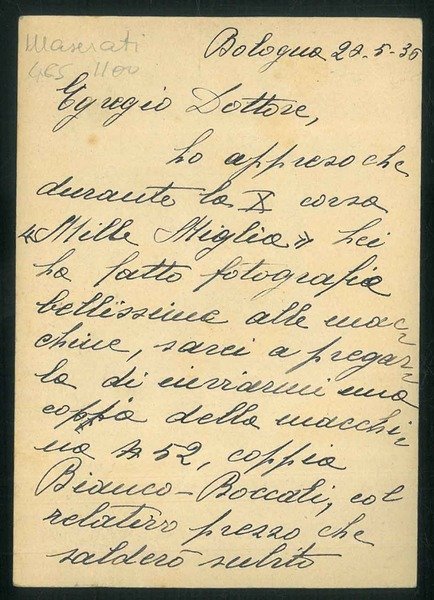 Maserati
465 1100
Bologna 22-5-36
Egregio Dottore,
ho appreso che
durante la X corsa
«Mille Miglia» Lei
ha fatto fotografie
bellissime alle mac=
chine, sarei a pregar=
la di inviarmi una
coppia della macchi=
na N 52, coppia
Bianco-Boccali, col
relativo prezzo che
salderò subito